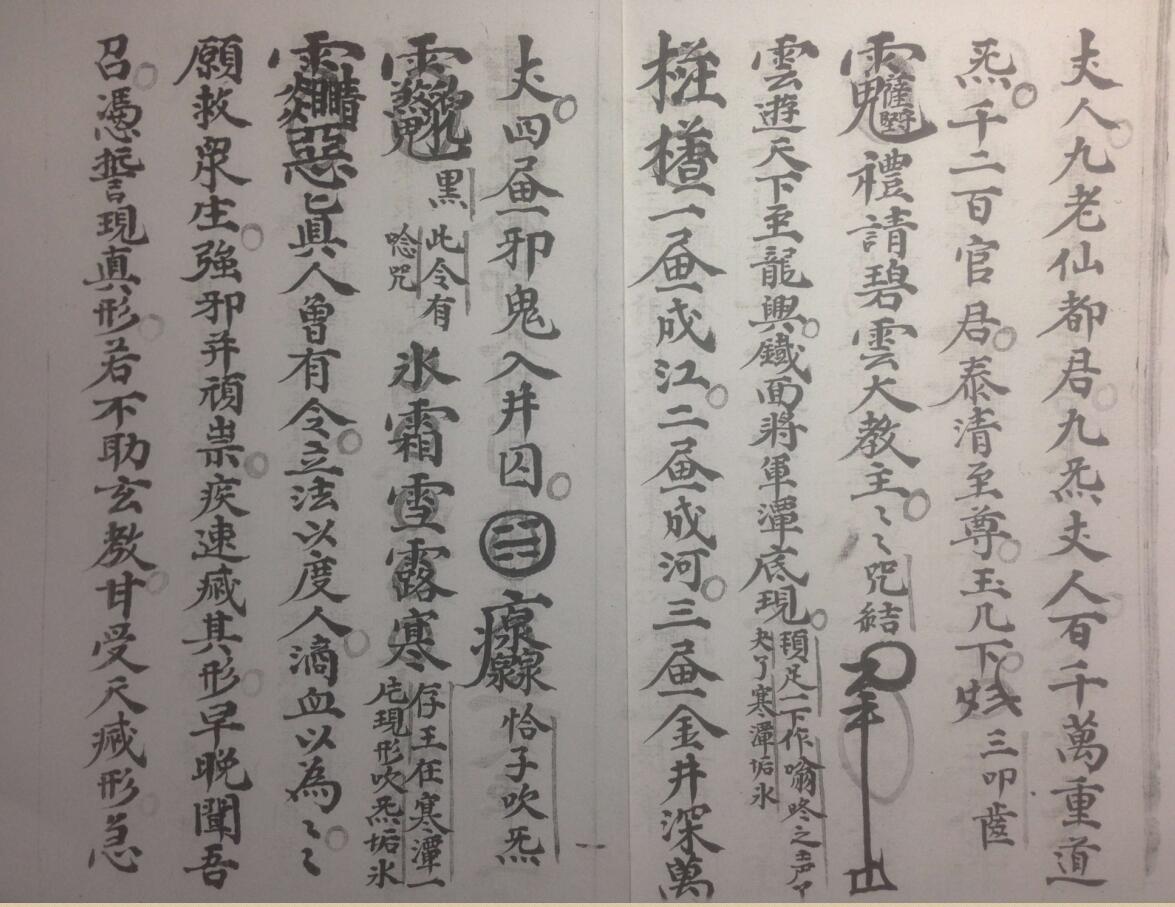 丈人九老仙都君九炁丈人百千萬重道
炁千二百官君泰清至尊玉几下 三叩齒
禮請碧雲大教主〻咒結
雲遊天下至龍興鐵面將軍潭底現
頓足一下作 咚之声了
大了寒潭垢氷
一𦘕成江二𦘕成河三𦘕金井深萬
丈四𦘕邪鬼入井囚 恰子吹炁
黑
此令有
唸咒
氷霜雪露寒
存王在寒潭一
庀現形吹炁垢氷
惡㠯真人曾有令立法以度人滴血以為〻
願救眾生強邪并頑祟疾速滅其形早晚聞吾
召憑誓現真形若不助玄教甘受天滅形急